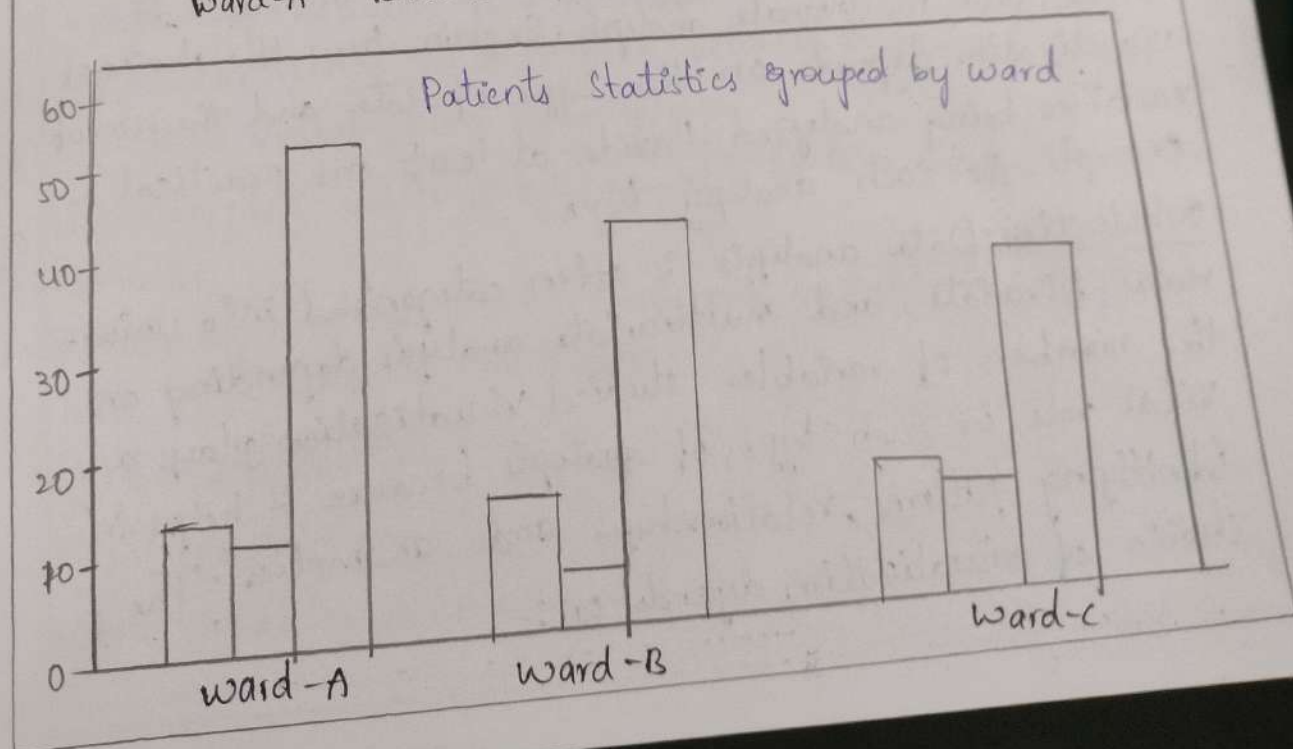 Ward-A
Patients statistics grouped by ward.
60
50
40
30
20
10
0
Ward-A
Ward-B
Ward-C